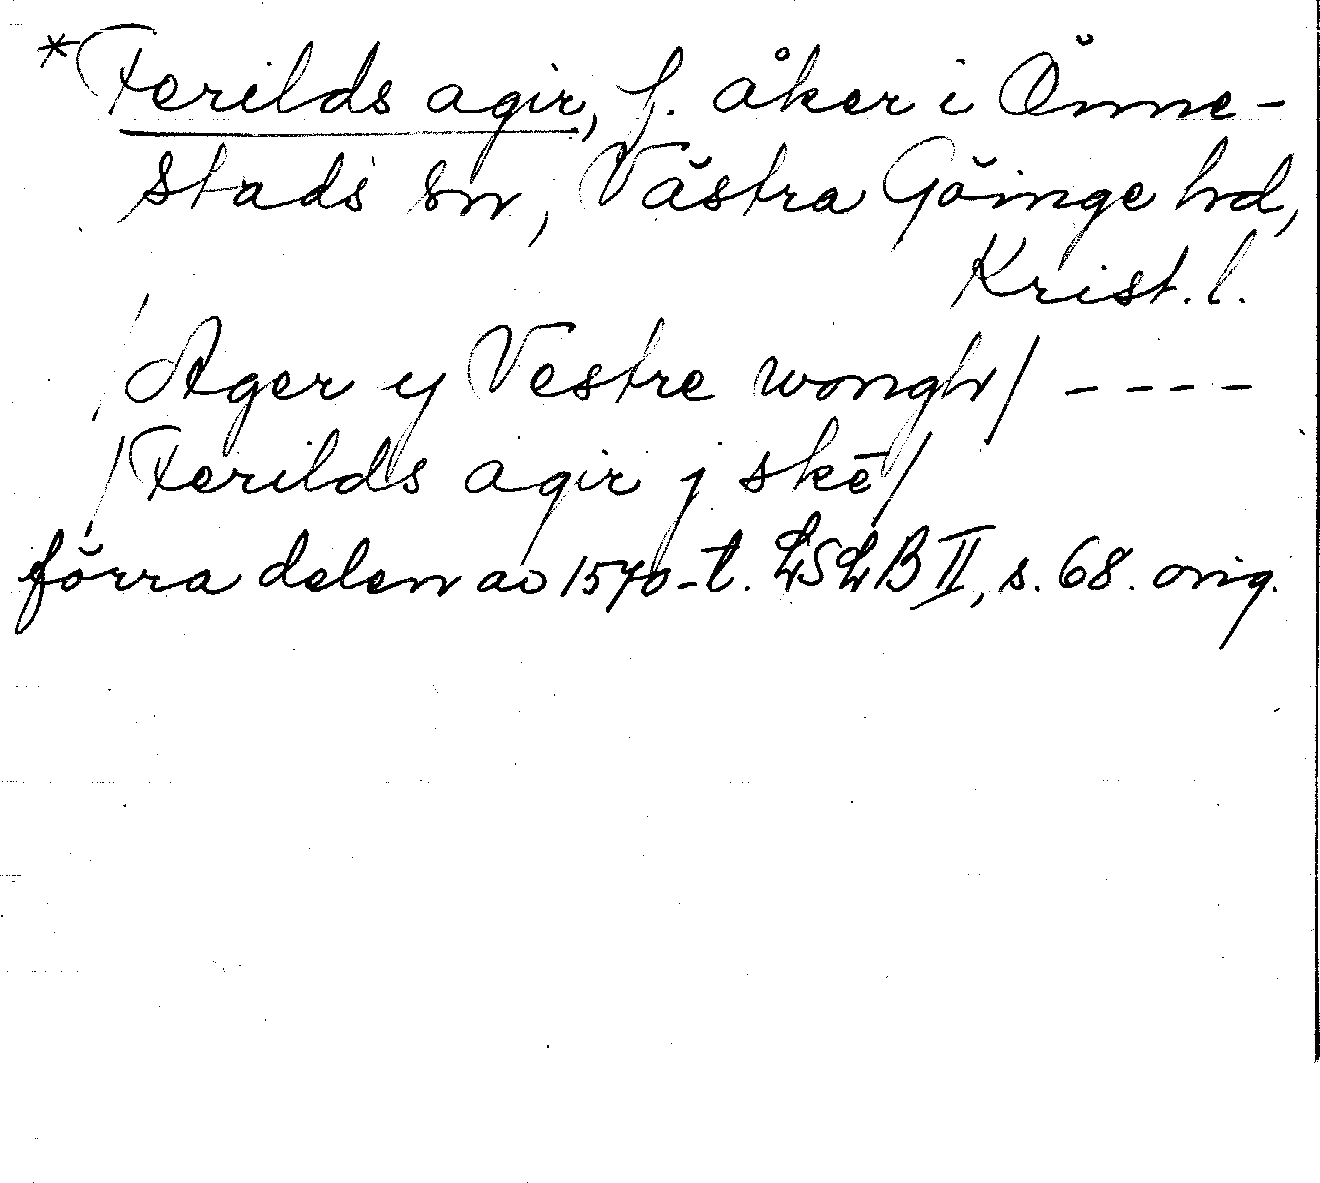 *Ferilds agir, f. åker i Önne-
stads sn, Västra Göinge hd,
Krist. l.
/Ager y Vestre wongh/ ----
/Ferilds agir j skē/
förra delen av 1570-t. LSLB II, s. 68. orig.